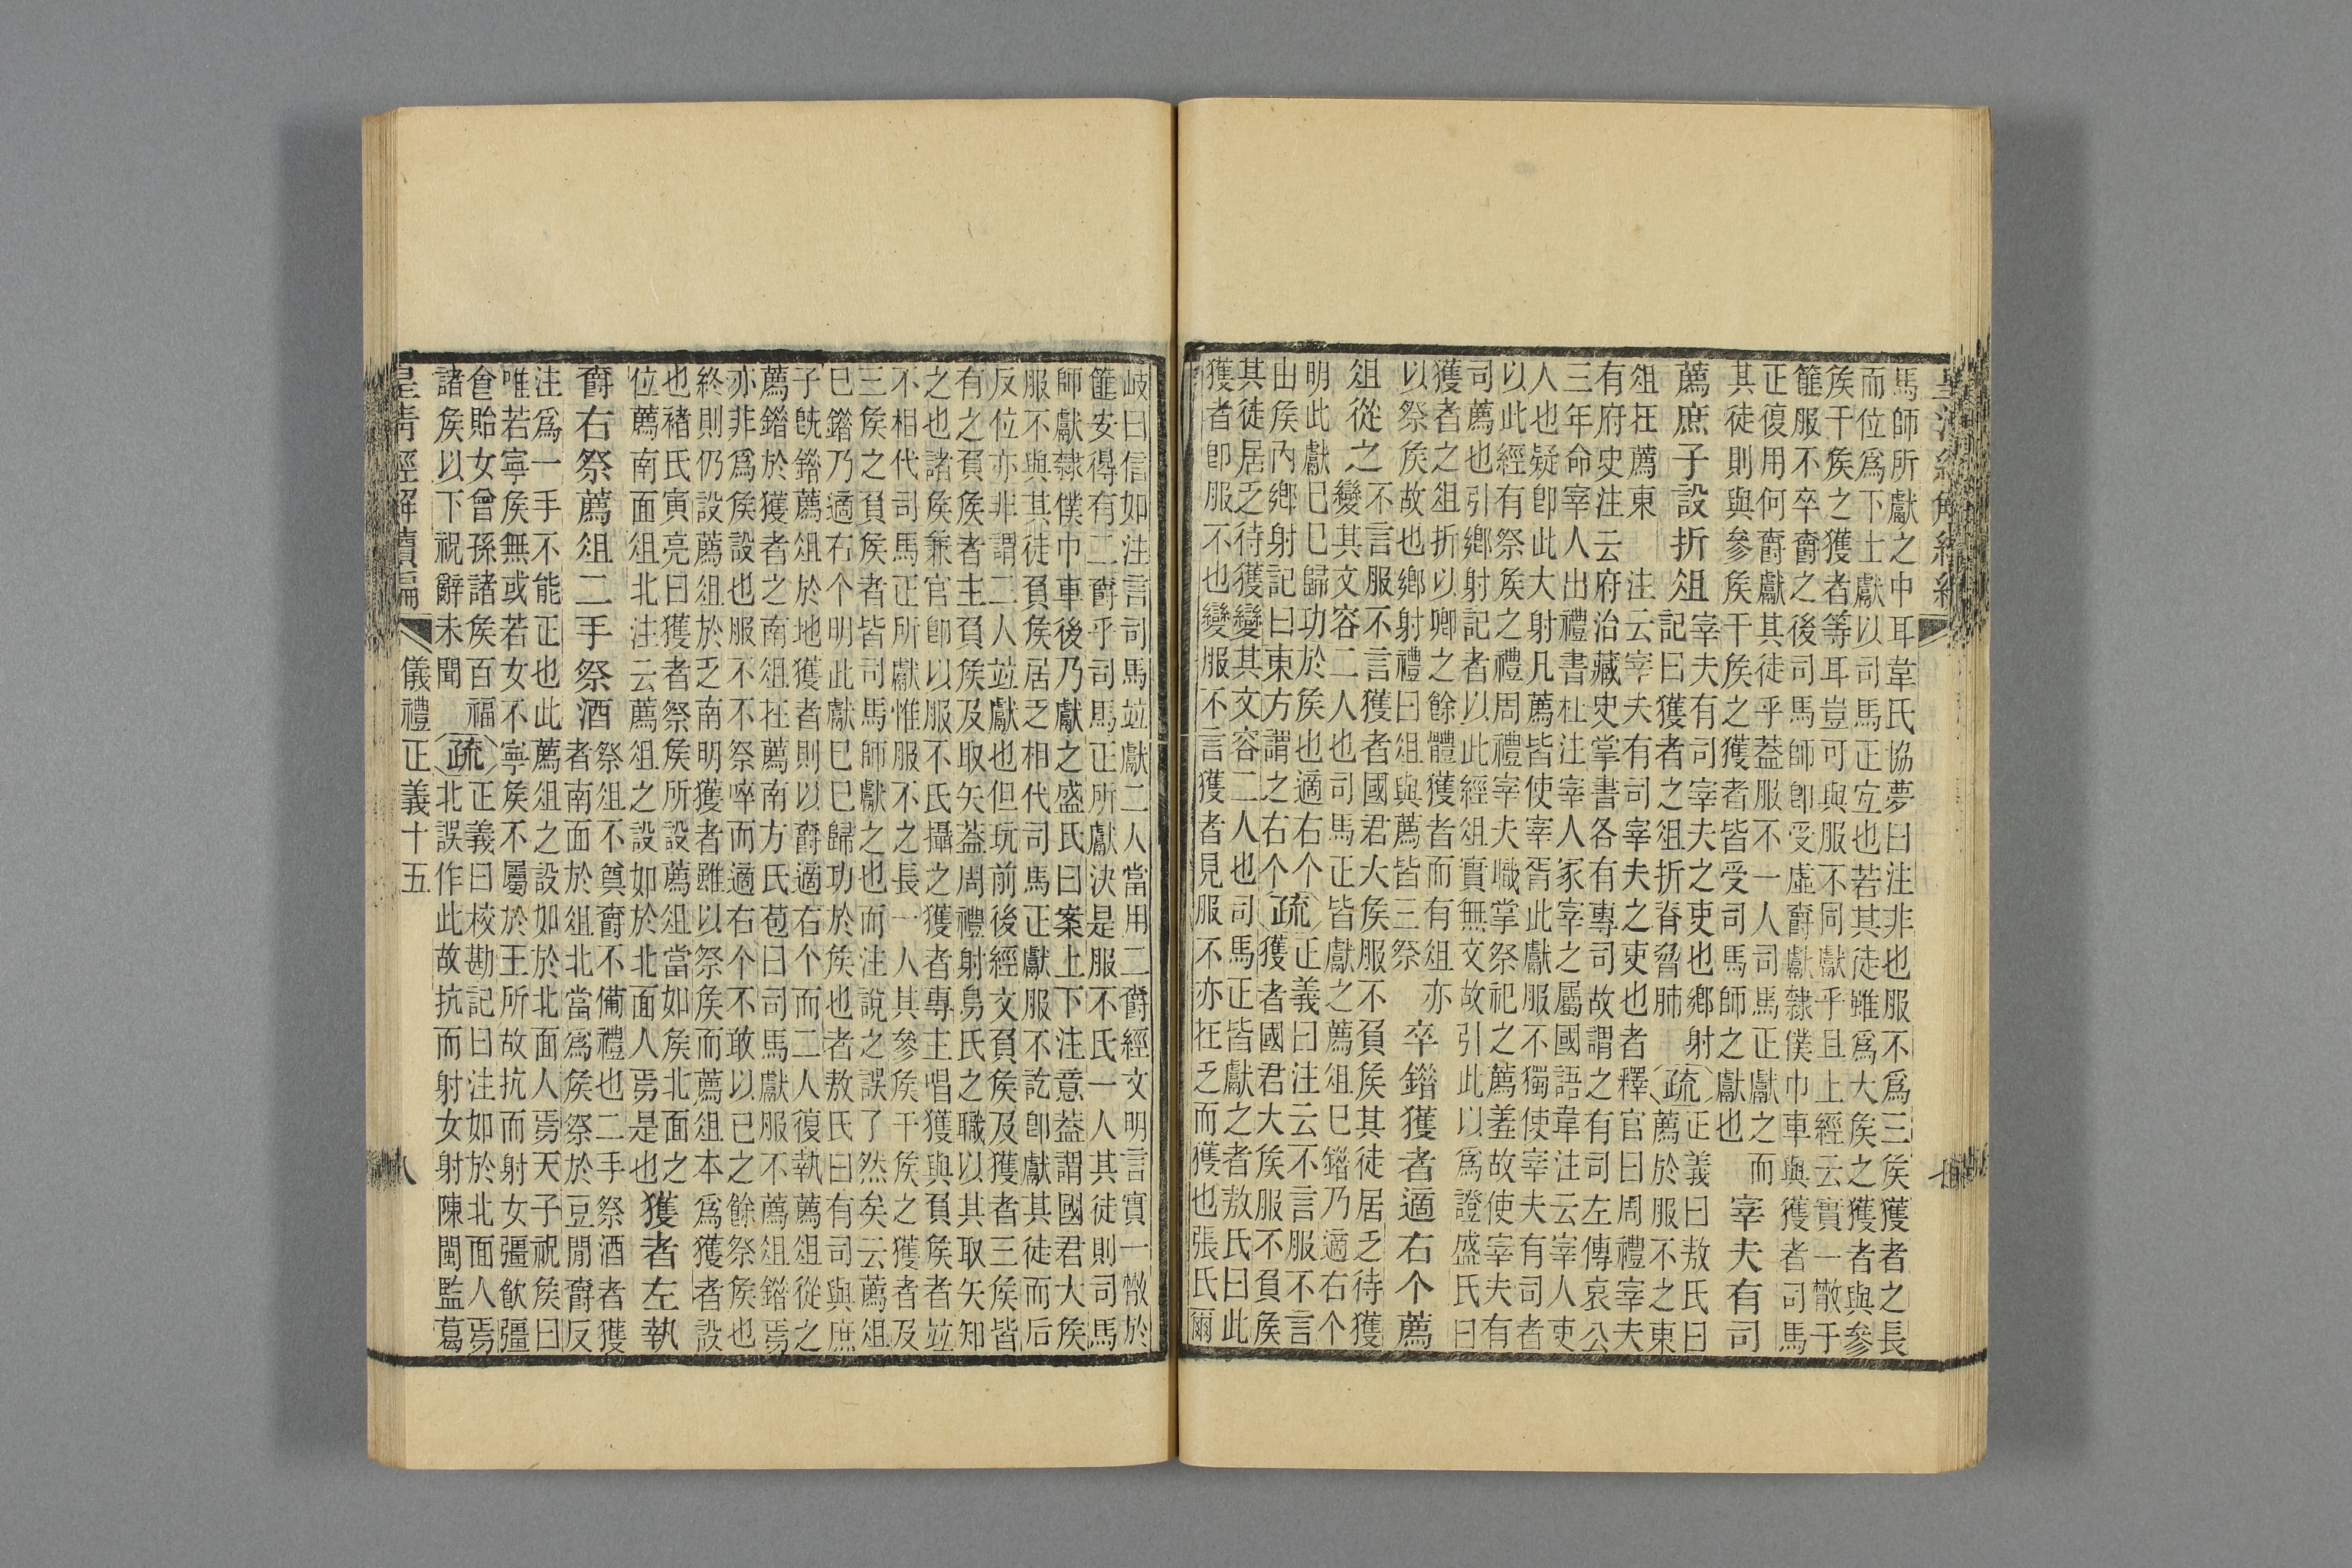 馬師所獻之中耳韋氏協夢曰注非也服不爲三矦獲者之長
而位爲下士獻以司馬正宐也若其徒雖爲大矦之獲者與參
矦干矦之獲者等耳豈可與服不同獻乎且上經云實一散于
篚服不卒爵之後司馬師卽受虛爵獻隸僕巾車與獲者司馬
正復用何爵獻其徒乎葢服不一人司馬正獻之而
其徒則與參矦干矦之獲者皆受司馬師之獻也
宰夫有司
薦庶子設折俎
宰夫有司宰夫之吏也鄉射
記曰獲者之俎折脊脅肺
疏
正義曰敖氏曰
薦於服不之東
俎在薦東
注云宰夫有司宰夫之吏也者釋官曰周禮宰夫
有府史注云府治藏史掌書各有專司故謂之有司左傳哀公
三年命宰人出禮書杜注宰人冢宰之屬國語韋注云宰人吏
人也疑卽此大射凡薦皆使宰胥此獻服不獨使宰夫有司者
以此經有祭矦之禮周禮宰夫職掌祭祀之薦羞故使宰夫有
司薦也引鄉射記者以此經俎實無文故引此以爲證盛氏曰
獲者之俎折以卿之餘體獲者而有俎亦
以祭矦故也鄉射禮曰俎與薦皆三祭
卒錯獲者適右个薦
俎從之
不言服不言獲者國君大矦服不負矦其徒居乏待獲
變其文容二人也司馬正皆獻之薦俎已錯乃適右个
明此獻已已歸功於矦也適右个
出矦內鄉射記曰東方謂之右个
疏
正義曰注云不言服不言
獲者國君大矦服不負矦
其徒居乏待獲變其文容二人也司馬正皆獻之者敖氏曰此
獲者卽服不也變服不言獲者見服不亦在乏而獲也張氏爾
岐曰信如注言司馬竝獻二人當用二爵經文明言實一散於
篚安得有二爵乎司馬正所獻決是服不氏一人其徒則司馬
師獻隸僕巾車後乃獻之盛氏曰案上下注意葢謂國君大矦
服不與其徒負矦居乏相代司馬正獻服不訖卽獻其徒而后
反位亦非謂二人竝獻也但玩前後經文負矦及獲者三矦皆
有之負矦者主負矦及取矢葢周禮射鳥氏之職以其取矢知
之也諸矦兼官卽以服不氏攝之獲者專主唱獲與負矦者竝
不相代司馬正所獻惟服不之長一人其參矦干矦之獲者及
三矦之負矦者皆司馬師獻之也而注說之誤了然矣云薦俎
已錯乃適右个明此獻已已歸功於矦也者敖氏曰有司與庶
子旣錯薦俎於地獲者則以爵適右个而二人復執薦俎從之
薦錯於獲者之南俎在薦南方氏苞曰司馬獻服不薦俎錯焉
亦非爲矦設也服不不祭啐而適右个不敢以已之餘祭矦也
終則仍設薦俎於乏南明獲者雖以祭矦而薦俎本爲獲者設
也褚氏寅亮曰獲者祭矦所設薦俎當如矦北面之
位薦南面俎北注云薦俎之設如於北面人焉是也
獲者左執
爵右祭薦俎二手祭酒
祭俎不奠爵不備禮也二手祭酒者獲
者南面於俎北當爲矦祭於豆閒爵反
注爲一手不能正也此薦俎之設如於北面人焉天子祝矦曰
唯若寧矦無或若女不寧矦不屬於王所故抗而射女彊飮彊
食貽女曾孫諸矦百福
諸矦以下祝辭未聞
疏
正義曰校勘記曰注如於北面人焉
北誤作此故抗而射女射陳閩監葛
皇淸經解續編
儀禮正義十五
八